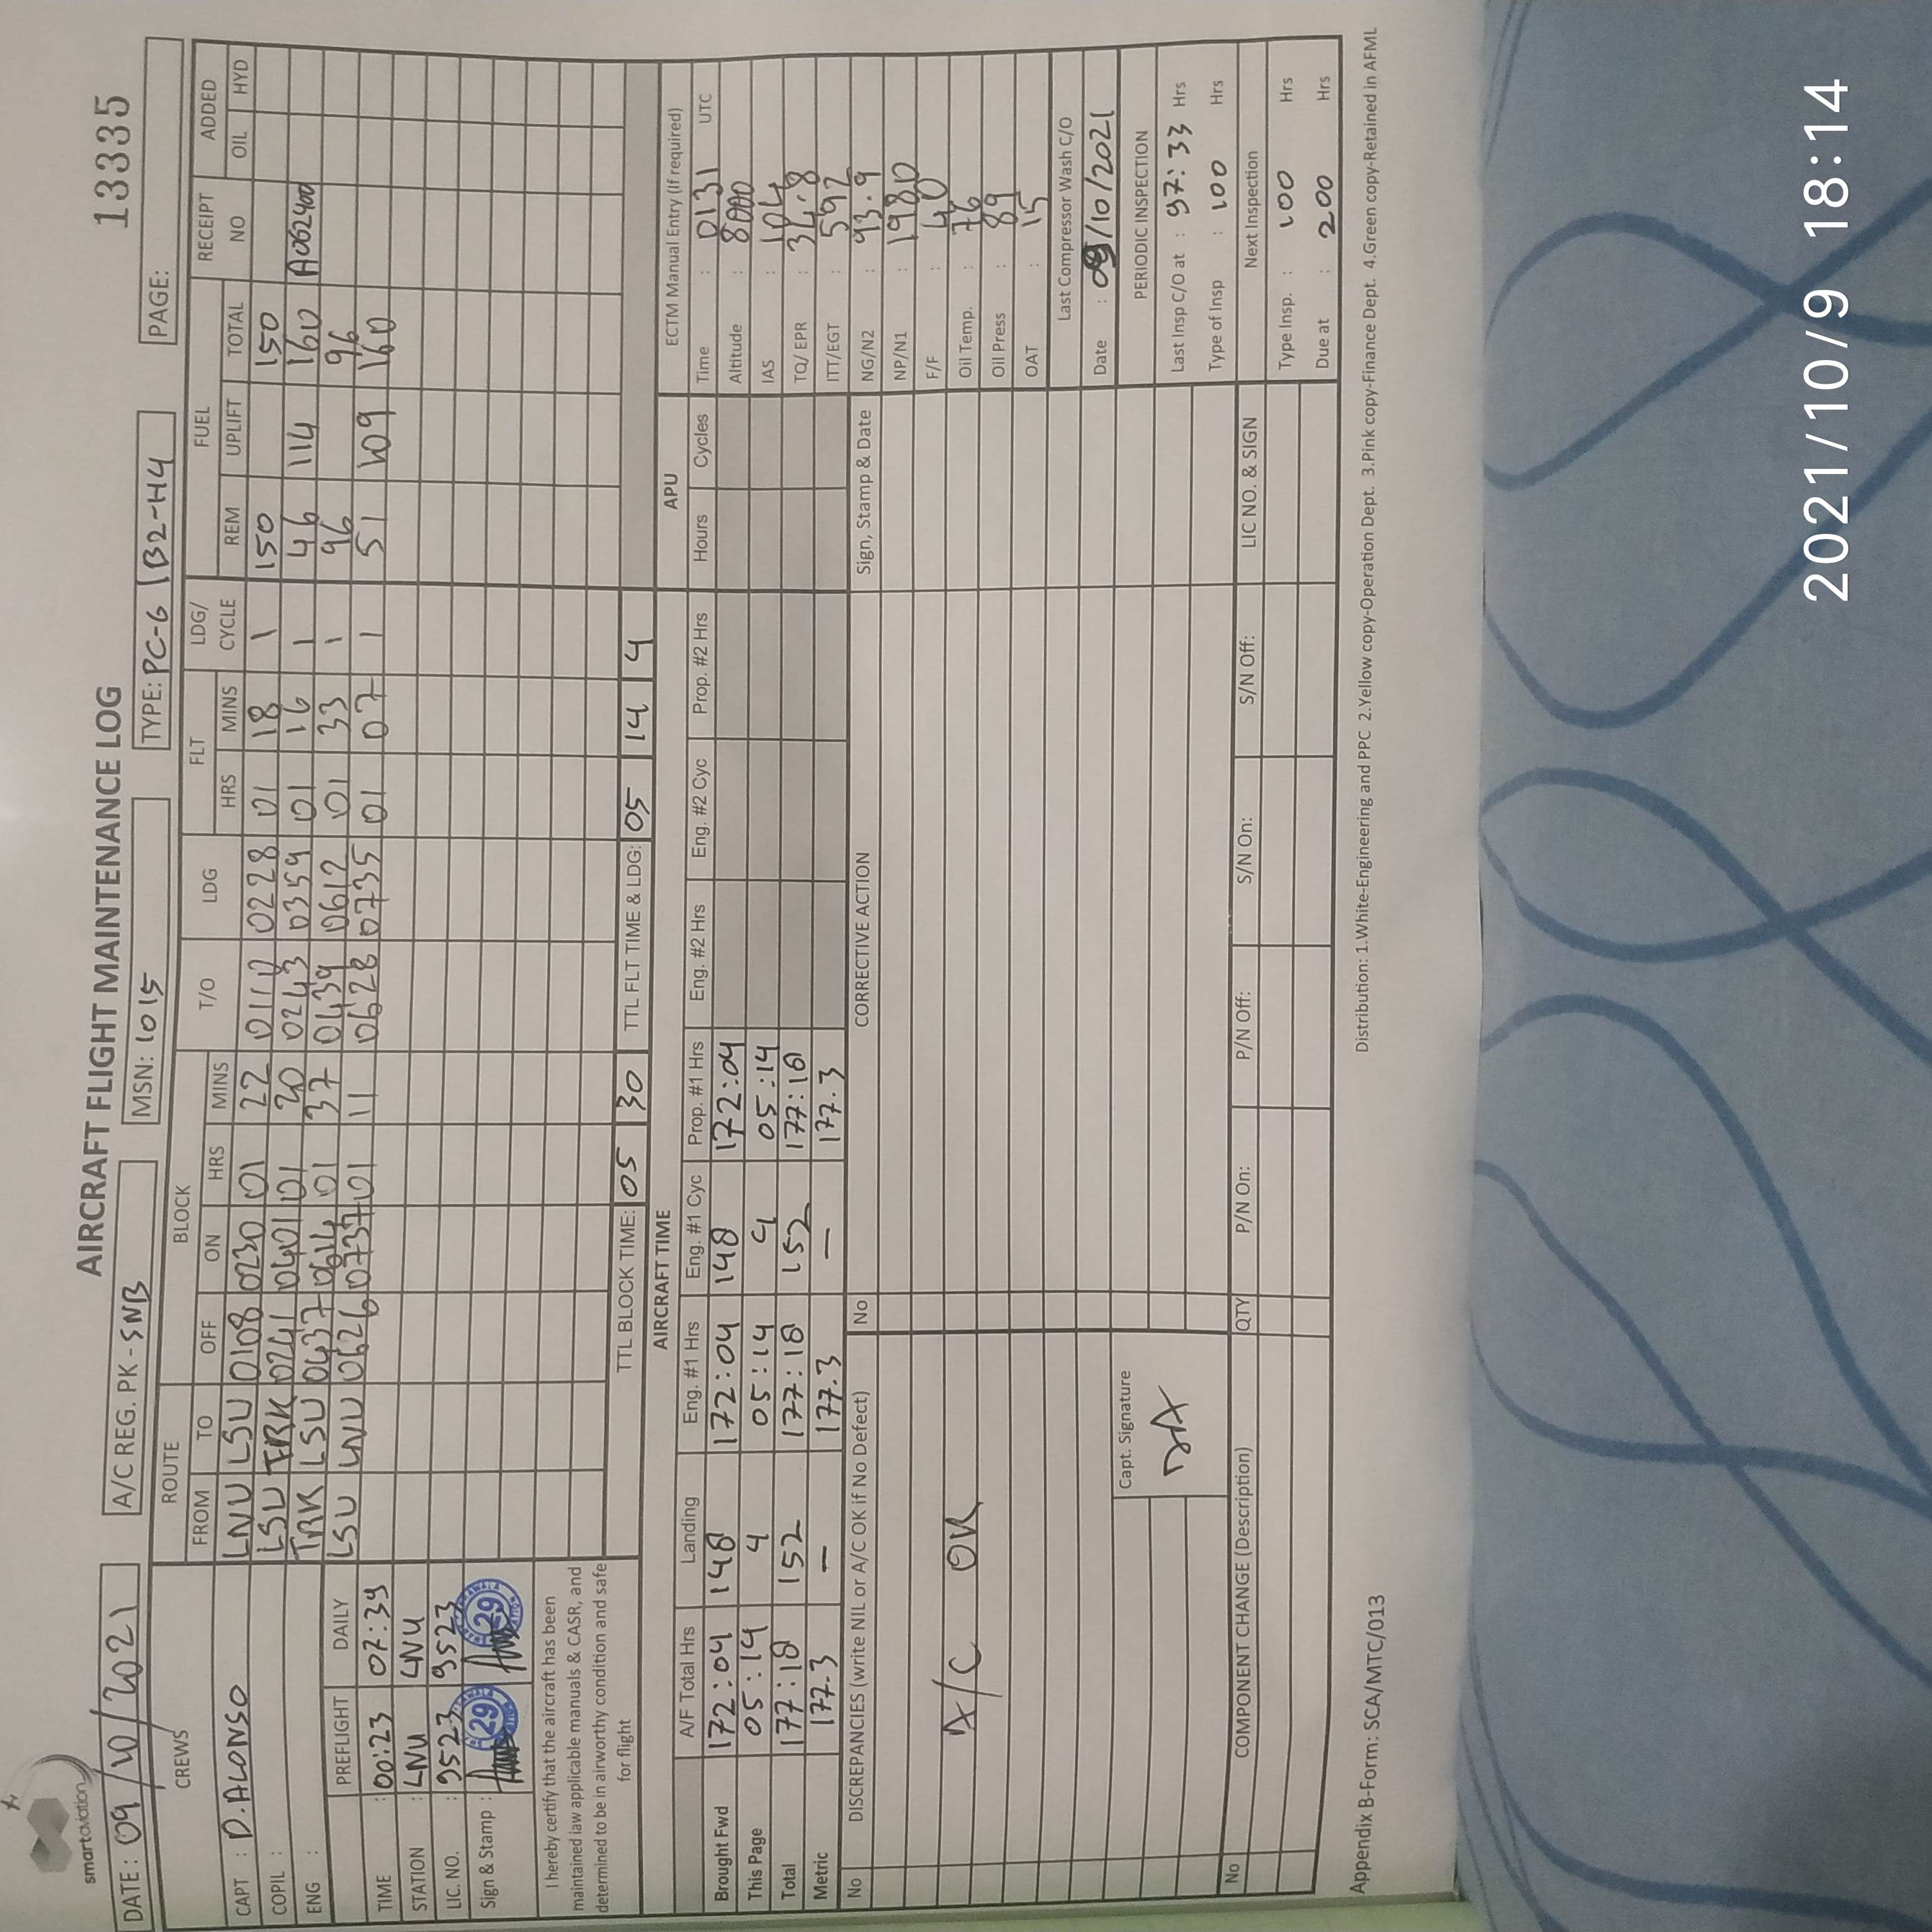 smartaviation
AIRCRAFT FLIGHT MAINTENANCE LOG
13335
DATE : 09/10/2021
A/C REG. PK - SNB
MSN: 1015
TYPE: PC-6 / B2-H4
PAGE:
CREWS
ROUTE
BLOCK
FLT
LDG/
FUEL
RECEIPT
ADDED
FROM TO OFF ON HRS MINS T/O LDG HRS MINS CYCLE REM UPLIFT TOTAL NO OIL HYD
CAPT : D. ALONSO
LNU LSU 0108 0230 01 22 0110 0228 01 18 1 150 150
COPIL :
LSU TRK 0241 0401 01 20 0243 0359 01 16 1 46 114 160 A062400
ENG :
TRK LSU 0437 0614 01 37 0439 0612 01 33 1 96 96
LSU LNU 0626 0737 01 11 0628 0735 01 07 1 51 109 160
PREFLIGHT DAILY
TIME : 00:23 07:39
STATION : LNU LNU
LIC. NO. : 9523 9523
Sign & Stamp : 29 29
I hereby certify that the aircraft has been
maintained law applicable manuals & CASR, and
determined to be in airworthy condition and safe
for flight
TTL BLOCK TIME: 05 30 TTL FLT TIME & LDG: 05 14 4
AIRCRAFT TIME
APU
ECTM Manual Entry (If required)
A/F Total Hrs Landing Eng. #1 Hrs Eng. #1 Cyc Prop. #1 Hrs Eng. #2 Hrs Eng. #2 Cyc Prop. #2 Hrs Hours Cycles
Brought Fwd 172:04 148 172:04 148 172:04
This Page 05:14 4 05:14 4 05:14
Total 177:18 152 177:18 152 177:18
Metric 177.3 — 177.3 — 177.3
Time : 0131 UTC
Altitude : 8000
IAS : 104
TQ/ EPR : 34.8
ITT/EGT : 592
NG/N2 : 93.9
NP/N1 : 1980
F/F : 40
Oil Temp. : 76
Oil Press : 89
OAT : 15
No DISCREPANCIES (write NIL or A/C OK if No Defect)
No CORRECTIVE ACTION
Sign, Stamp & Date
A/C OK
Capt. Signature
DA
Last Compressor Wash C/O
Date : 09/10/2021
PERIODIC INSPECTION
Last Insp C/O at : 97:33 Hrs
Type of Insp : 100 Hrs
Next Inspection
Type Insp. : 100 Hrs
Due at : 200 Hrs
No COMPONENT CHANGE (Description) QTY P/N On: P/N Off: S/N On: S/N Off: LIC NO. & SIGN
Appendix B-Form: SCA/MTC/013
Distribution: 1.White-Engineering and PPC 2.Yellow copy-Operation Dept. 3.Pink copy-Finance Dept. 4.Green copy-Retained in AFML
2021/10/9 18:14